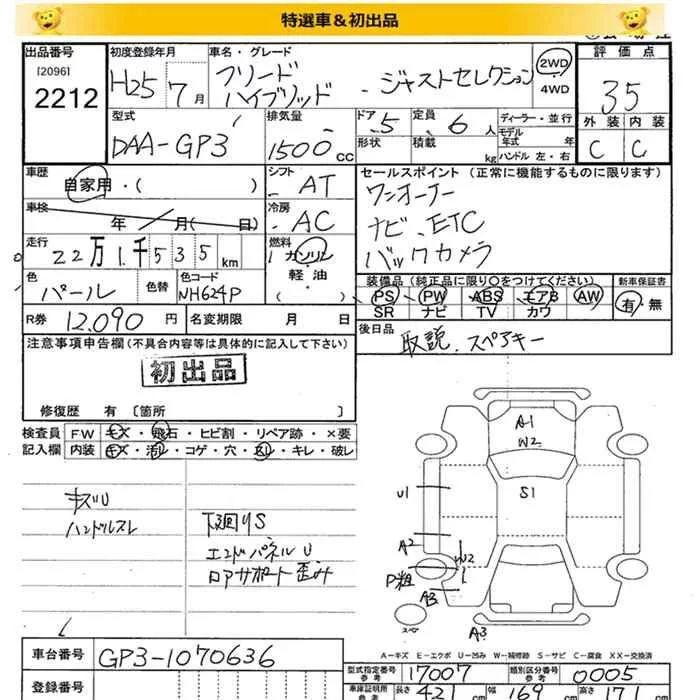 特選車&初出品
出品番号 [2096] 2212
初度登録年月 H25 7月
車名・グレード フリードハイブリッド ジャストセレクション
2WD・4WD
評価点 35
外装 C 内装 C
型式 DAA-GP3
排気量 1500cc
ドア 5 形状
定員 6人 積載 kg
ディーラー・並行
モデル年式 年
ハンドル 左・右
車歴 自家用・( )
シフト AT
車検 年 月(日)
冷房 AC
走行 22万1千535km
燃料 ガソリン 軽油・( )
色 パール 色替 色コード NH624P
R券 12,090円 名変期限 月 日
セールスポイント(正常に機能するものに限ります)
ワンオーナー
ナビ、ETC
バックカメラ
装備品(純正品に限り○をつけてください)
PS PW ABS エアB AW
SR ナビ TV カワ
新車保証書 有・無
後日品 取説、スペアキー
注意事項申告欄(不具合内容等は具体的に記入して下さい)
初出品
修復歴 有 〔箇所 〕
検査員 FW キズ・飛石・ヒビ割・リペア跡・×要
記入欄 内装 キズ・汚レ・コゲ・穴・・キレ・破レ
キズU
ハンドルスレ
下廻りS
エンドパネルU
ロアサポート歪み
A1
W2
S1
U1
A2
W2
P粗
A3
スペア
A3
A-キズ E-エクボ U-凹み W-補修跡 S-サビ C-腐食 XX-交換済
車台番号 GP3-1070636
登録番号
型式指定番号 参考 17007
類別区分番号 参考 0005
車庫証明用 参考 長さ 421cm 幅 169cm 高さ 171cm